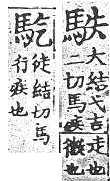 大結弋吉走也
二切馬疾也
徒結切馬
行疾也